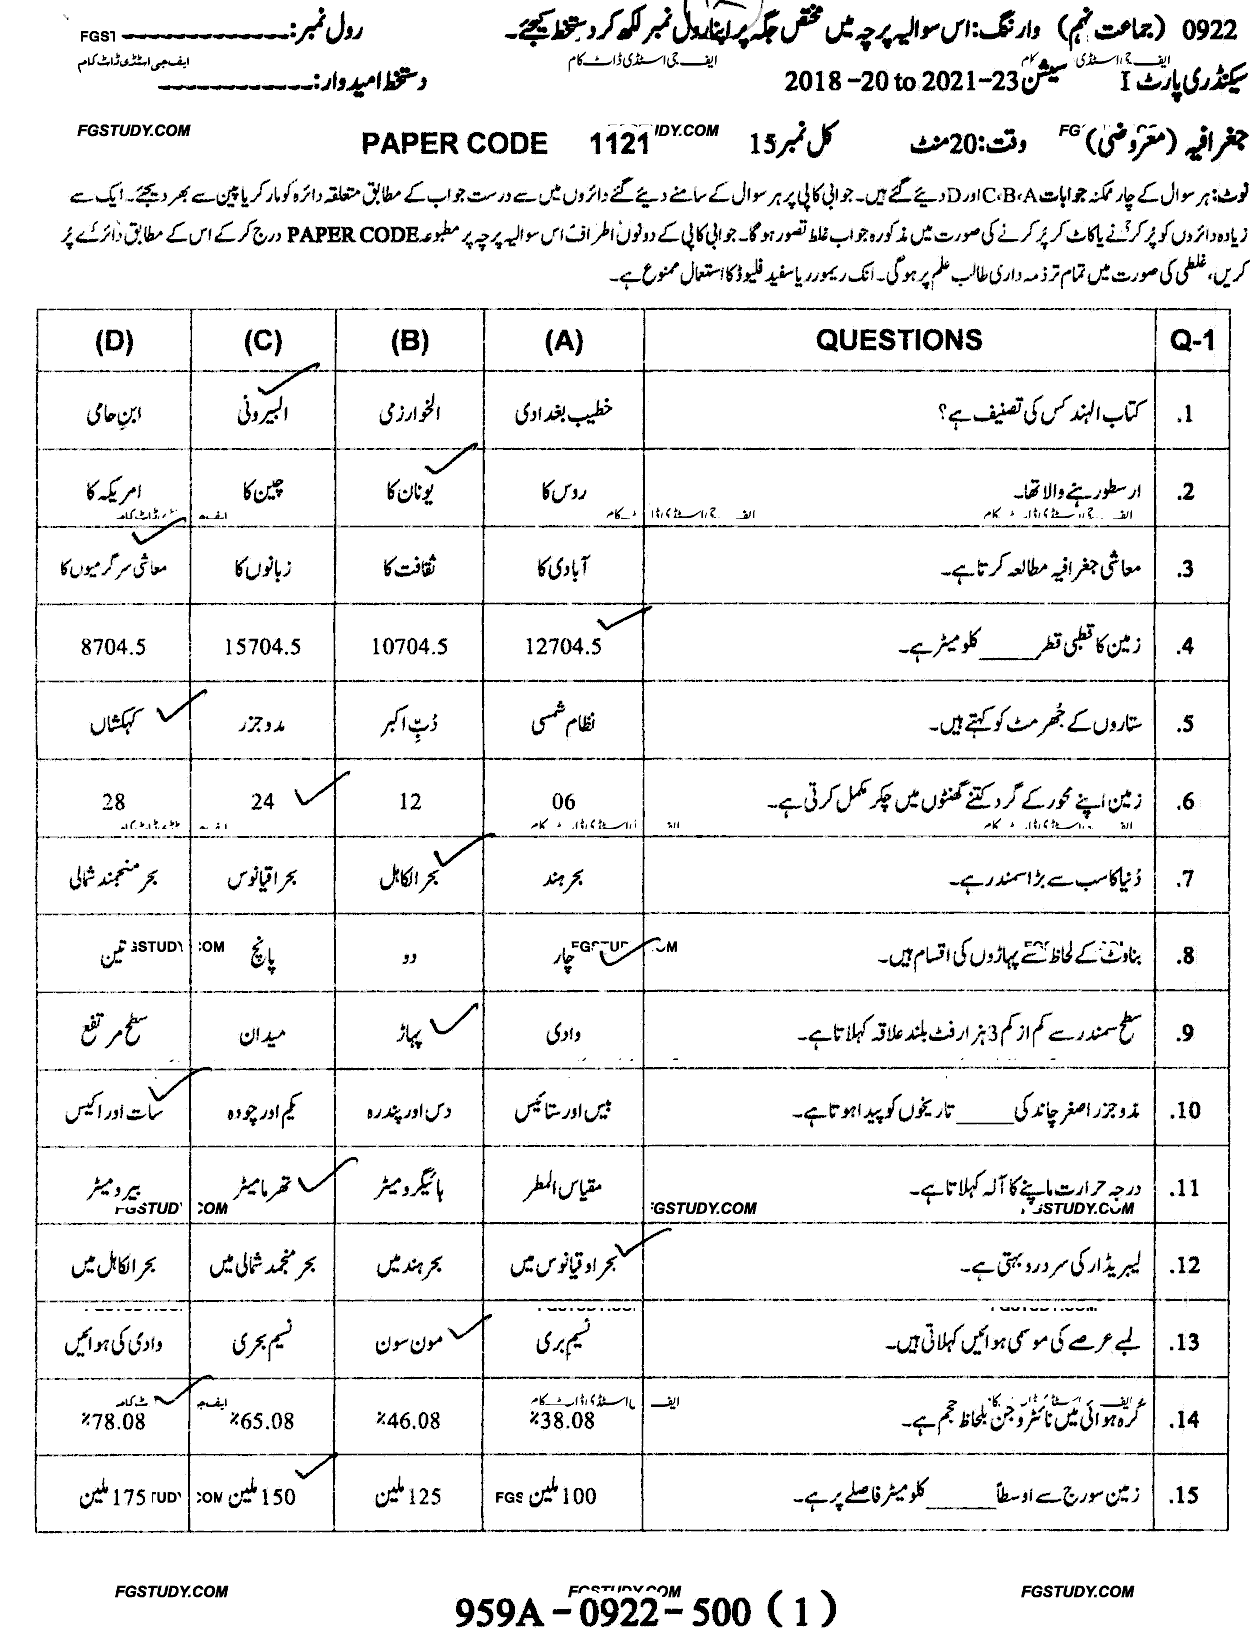 0922 (جماعت نہم) وارننگ: اس سوالیہ پرچہ میں مختص جگہ پر اپنا رول نمبر لکھ کر دستخط کیجئے۔ رول نمبر:
FGST
ایف جی اسٹڈی ڈاٹ کام ایف جی اسٹڈی ڈاٹ کام
سیکنڈری پارٹ I سیشن 2018-20 to 2021-23 دستخط امیدوار:
جغرافیہ (معروضی) وقت: 20 منٹ کل نمبر 15 PAPER CODE 1121
FGSTUDY.COM IDY.COM FG
نوٹ: ہر سوال کے چار ممکنہ جوابات C،B،A اور D دیئے گئے ہیں۔ جوابی کاپی پر ہر سوال کے سامنے دیئے گئے دائروں میں سے درست جواب کے مطابق متعلقہ دائرہ کو مارکر یا پین سے بھر دیجئے۔ ایک سے
زیادہ دائروں کو پُر کرنے یا کاٹ کر پُر کرنے کی صورت میں مذکورہ جواب غلط تصور ہوگا۔ جوابی کاپی کے دونوں اطراف اس سوالیہ پرچہ پر مطبوعہ PAPER CODE درج کر کے اس کے مطابق دائرے پُر
کریں، غلطی کی صورت میں تمام تر ذمہ داری طالب علم پر ہوگی۔ انک ریموور یا سفید فلیوڈ کا استعمال ممنوع ہے۔
Q-1 QUESTIONS (A) (B) (C) (D)
.1 کتاب الہند کس کی تصنیف ہے؟ خطیب بغدادی الخوارزمی البیرونی ابن حامی
.2 ارسطو رہنے والا تھا۔ روس کا یونان کا چین کا امریکہ کا
.3 معاشی جغرافیہ مطالعہ کرتا ہے۔ آبادی کا ثقافت کا زبانوں کا معاشی سرگرمیوں کا
.4 زمین کا قطبی قطر _____ کلومیٹر ہے۔ 12704.5 10704.5 15704.5 8704.5
.5 ستاروں کے جُھرمٹ کو کہتے ہیں۔ نظام شمسی دُبِّ اکبر مدوجزر کہکشاں
.6 زمین اپنے محور کے گرد کتنے گھنٹوں میں چکر مکمل کرتی ہے۔ 06 12 24 28
.7 دُنیا کا سب سے بڑا سمندر ہے۔ بحر ہند بحر الکاہل بحر اقیانوس بحر منجمند شمالی
.8 بناوٹ کے لحاظ سے پہاڑوں کی اقسام ہیں۔ چار دو پانچ تین
.9 سطح سمندر سے کم از کم 3 ہزار فٹ بلند علاقہ کہلاتا ہے۔ وادی پہاڑ میدان سطح مرتفع
.10 مدوجزر اصغر چاند کی _____ تاریخوں کو پیدا ہوتا ہے۔ بیس اور ستائیس دس اور پندرہ یکم اور چودہ سات اور اکیس
.11 درجہ حرارت ماپنے کا آلہ کہلاتا ہے۔ مقیاس المطر ہائیگرومیٹر تھرمامیٹر بیرومیٹر
.12 لیبریڈار کی سرد رو بہتی ہے۔ بحر اوقیانوس میں بحر ہند میں بحر منجمد شمالی میں بحر الکاہل میں
.13 لمبے عرصے کی موسمی ہوائیں کہلاتی ہیں۔ نسیم بری مون سون نسیم بحری وادی کی ہوائیں
.14 کُرہ ہوائی میں نائٹروجن بلحاظ حجم ہے۔ %38.08 %46.08 %65.08 %78.08
.15 زمین سورج سے اوسطاً _____ کلومیٹر فاصلے پر ہے۔ 100 ملین 125 ملین 150 ملین 175 ملین
FGSTUDY.COM FGSTUDY.COM FGSTUDY.COM
959A-0922-500 (1)